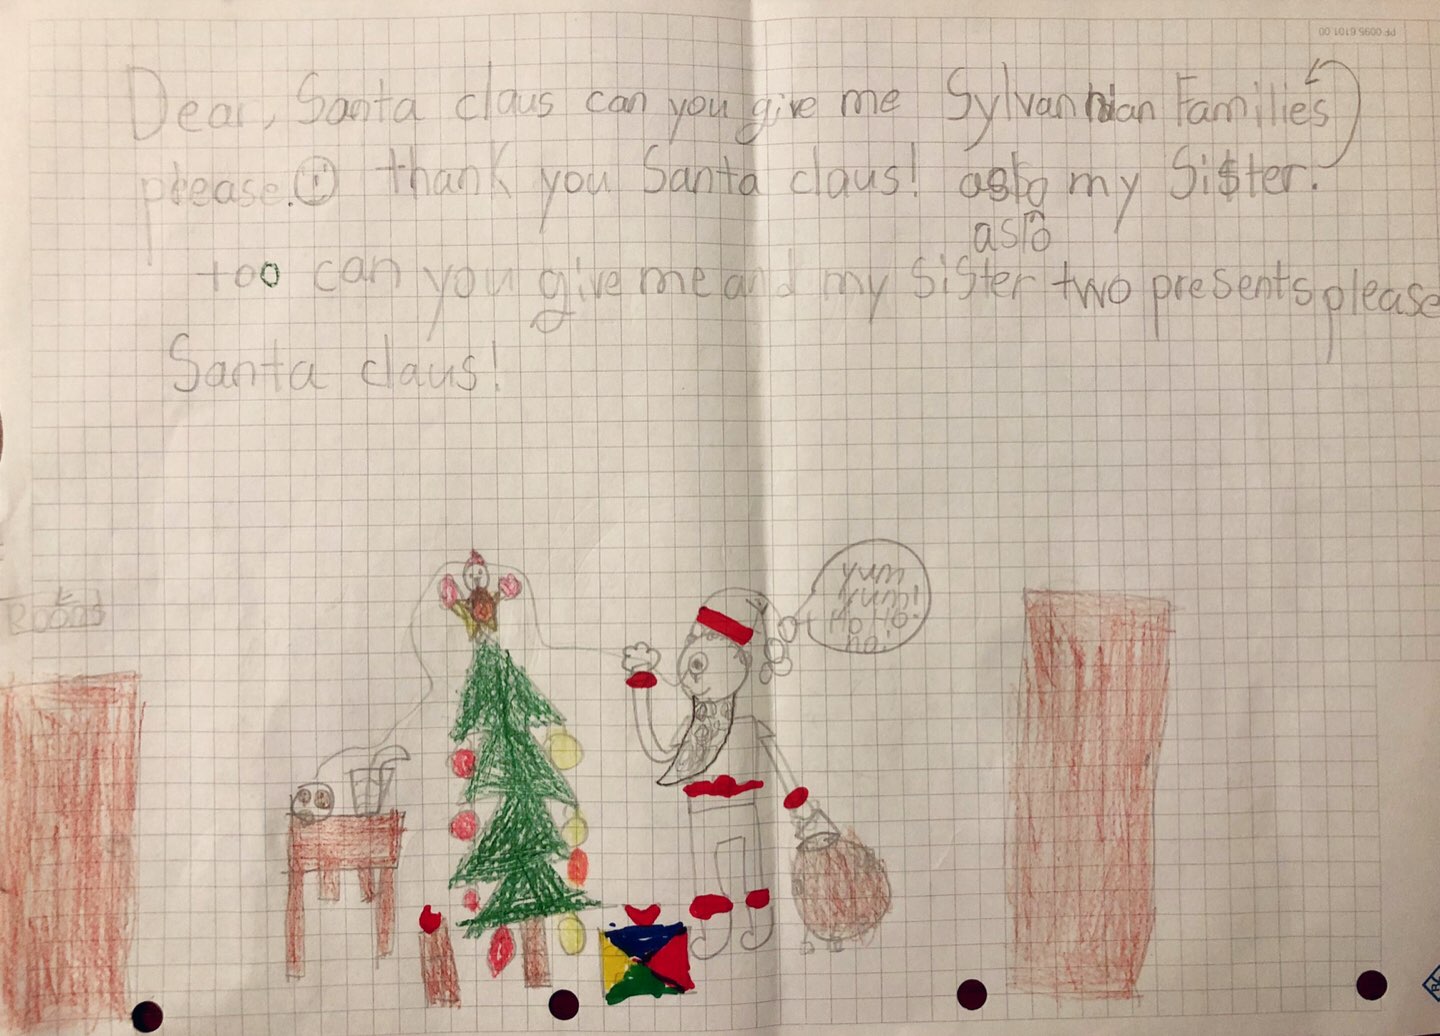 Dear, Santa claus can you give me Sylvannian Families
please. thank you Santa claus! aslo my Sister.
aslo
too can you give me and my Sister two presents please
Santa claus!
yum
yum!
PF 0095.6101.00